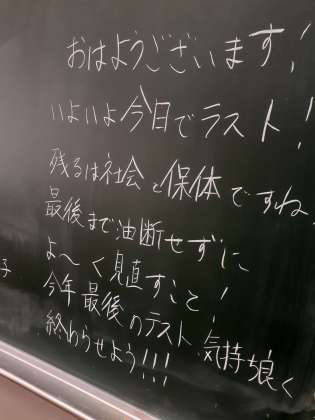 おはようございます!
いよいよ今日でラスト!
残るは社会と保体ですね。
最後まで油断せずに
よ〜く見直すこと!
今年最後のテスト、気持ち良く
終わらせよう!!!